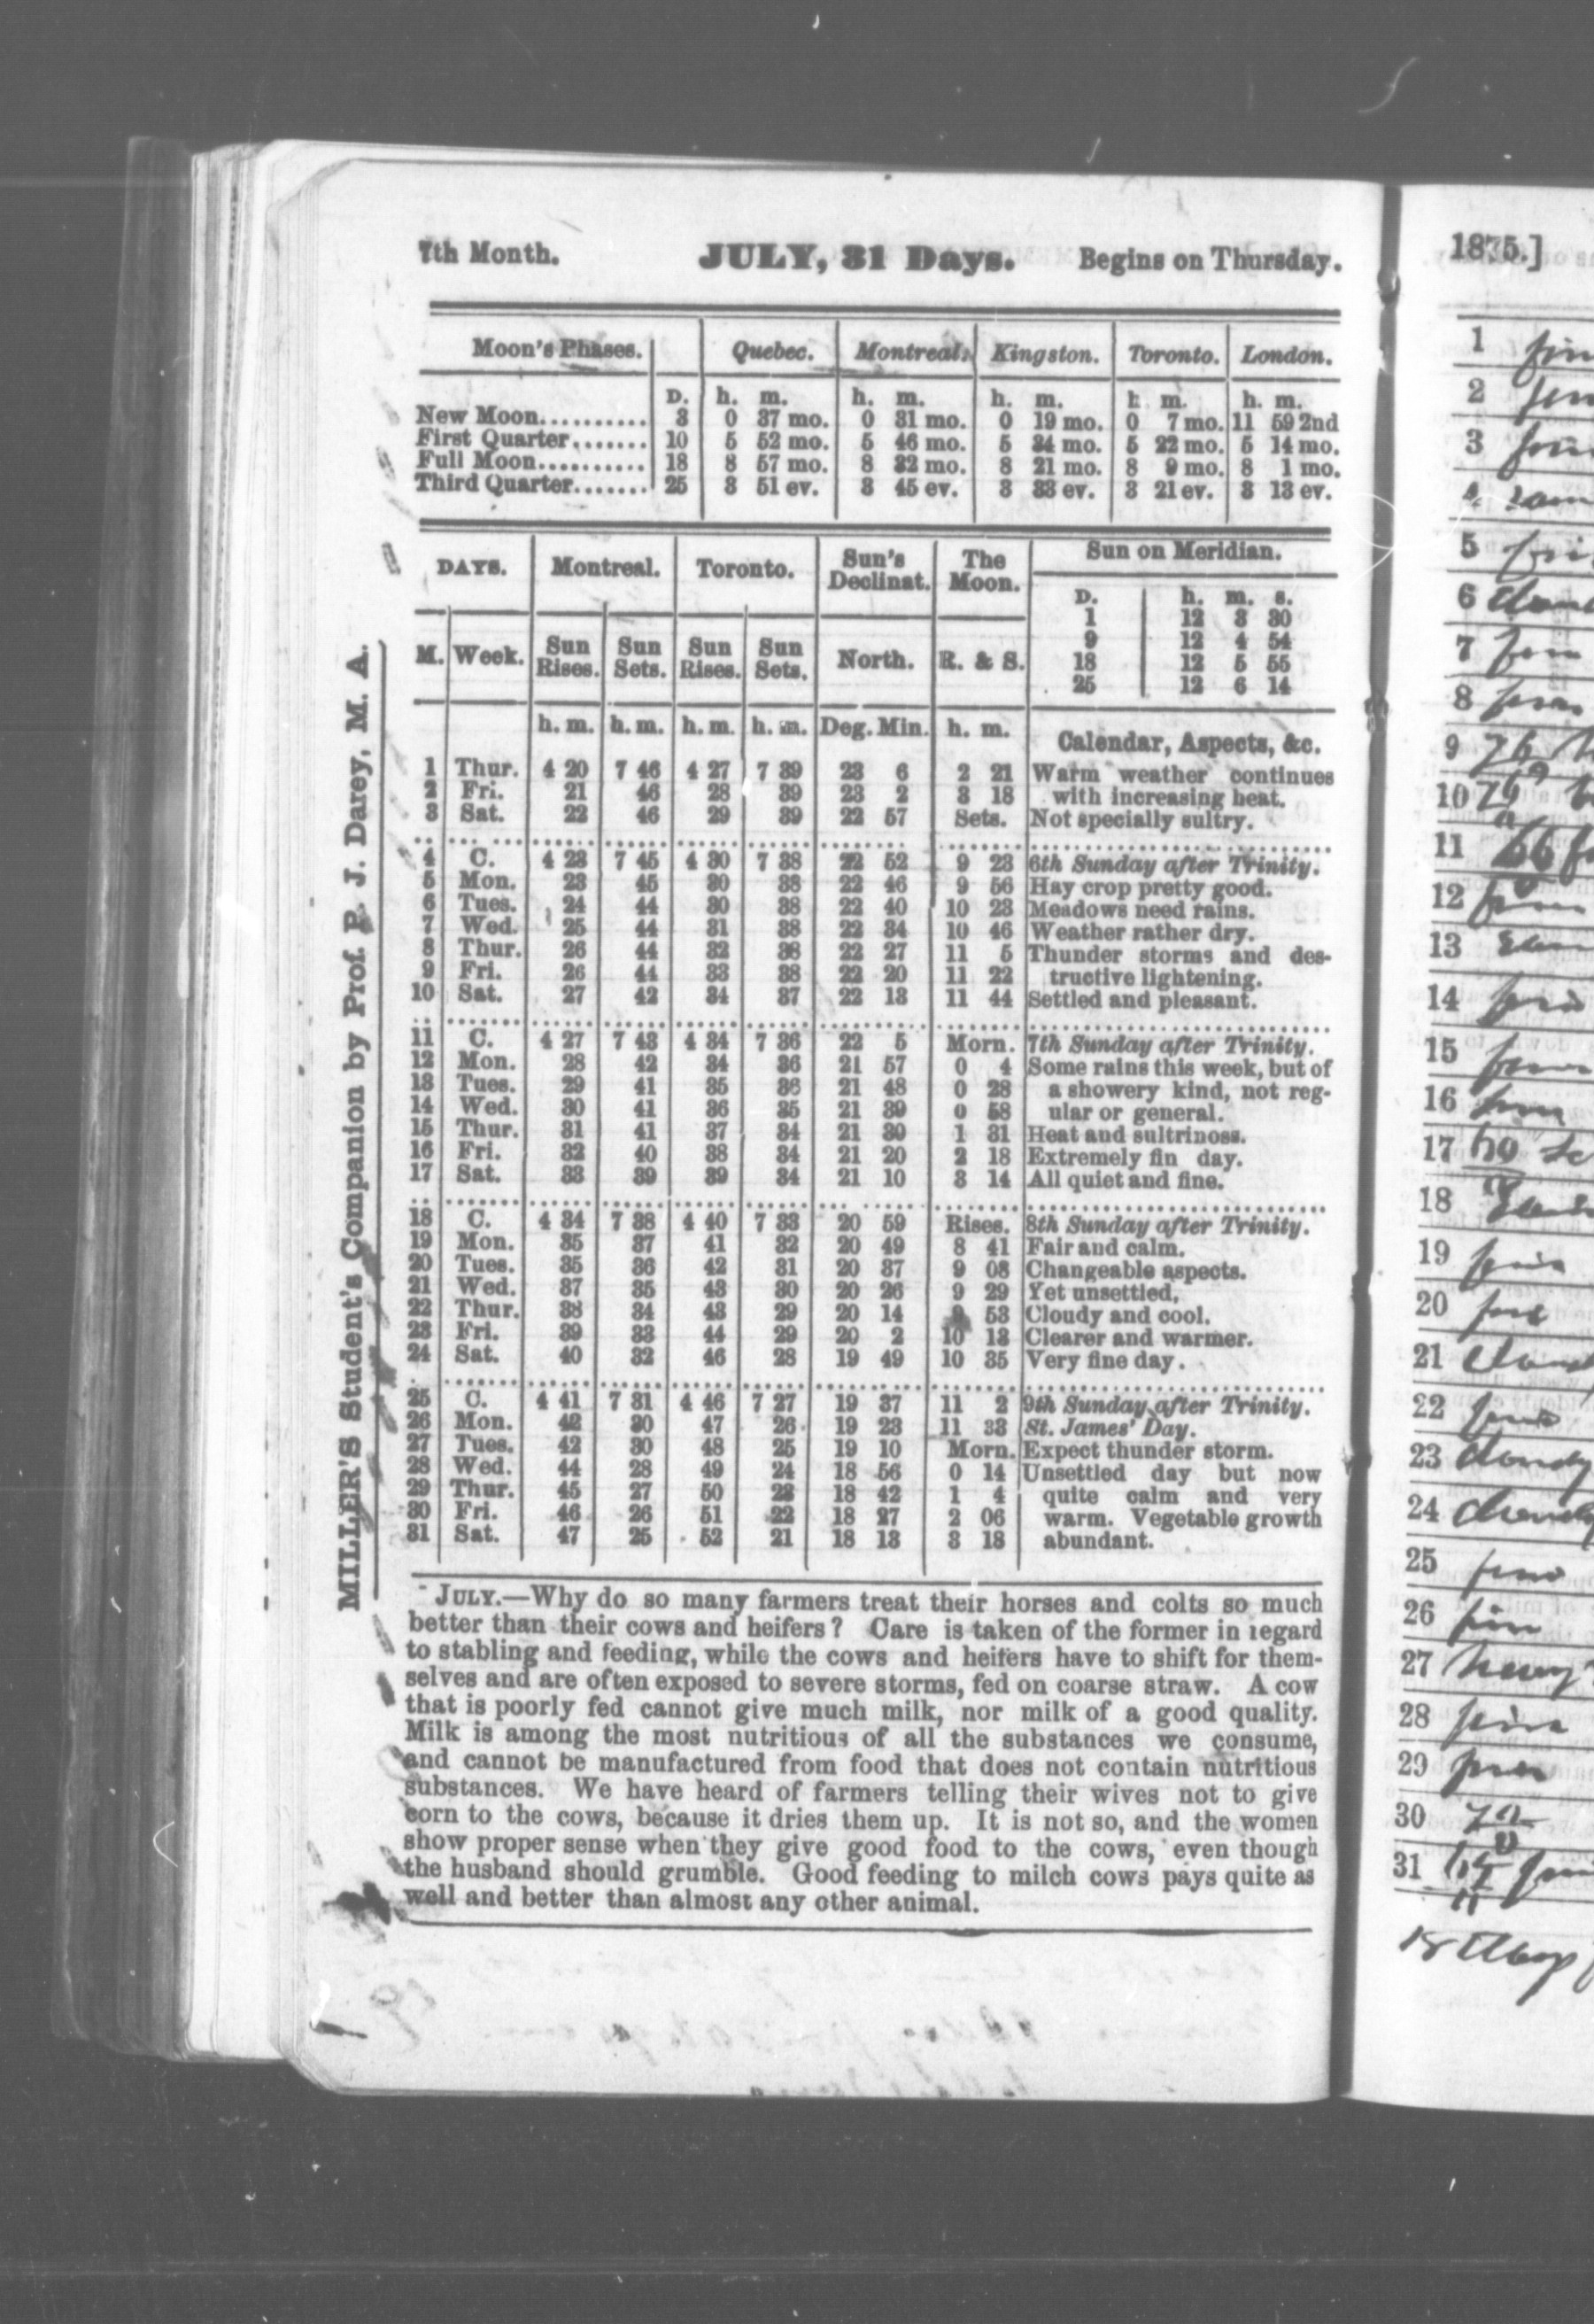 7th Month. JULY, 31 Days. Begins on Thursday.
Moon's Phases. Quebec. Montreal. Kingston. Toronto. London.
D. h. m. h. m. h. m. h. m. h. m.
New Moon.......... 3 0 37 mo. 0 31 mo. 0 19 mo. 0 7 mo. 11 59 2nd
First Quarter....... 10 5 52 mo. 5 46 mo. 5 34 mo. 5 22 mo. 5 14 mo.
Full Moon.......... 18 8 57 mo. 8 32 mo. 8 21 mo. 8 9 mo. 8 1 mo.
Third Quarter....... 25 3 51 ev. 3 45 ev. 3 33 ev. 3 21 ev. 3 13 ev.
DAYS. Montreal. Toronto. Sun's Declinat. The Moon. Sun on Meridian.
D. h. m. s.
1 12 3 30
9 12 4 54
18 12 5 55
25 12 6 14
M. Week. Sun Rises. Sun Sets. Sun Rises. Sun Sets. North. R. & S.
h. m. h. m. h. m. h. m. Deg. Min. h. m. Calendar, Aspects, &c.
1 Thur. 4 20 7 46 4 27 7 39 23 6 2 21 Warm weather continues
2 Fri. 21 46 28 39 23 2 3 18 with increasing heat.
3 Sat. 22 46 29 39 22 57 Sets. Not specially sultry.
4 C. 4 23 7 45 4 30 7 38 22 52 9 23 6th Sunday after Trinity.
5 Mon. 23 45 30 38 22 46 9 56 Hay crop pretty good.
6 Tues. 24 44 30 38 22 40 10 23 Meadows need rains.
7 Wed. 25 44 31 38 22 34 10 46 Weather rather dry.
8 Thur. 26 44 32 38 22 27 11 5 Thunder storms and des-
9 Fri. 26 44 33 38 22 20 11 22 tructive lightening.
10 Sat. 27 42 34 37 22 13 11 44 Settled and pleasant.
11 C. 4 27 7 43 4 34 7 36 22 5 Morn. 7th Sunday after Trinity.
12 Mon. 28 42 34 36 21 57 0 4 Some rains this week, but of
13 Tues. 29 41 35 36 21 48 0 28 a showery kind, not reg-
14 Wed. 30 41 36 35 21 39 0 58 ular or general.
15 Thur. 31 41 37 34 21 30 1 31 Heat and sultrinoss.
16 Fri. 32 40 38 34 21 20 2 18 Extremely fin day.
17 Sat. 33 39 39 34 21 10 3 14 All quiet and fine.
18 C. 4 34 7 38 4 40 7 33 20 59 Rises. 8th Sunday after Trinity.
19 Mon. 35 37 41 32 20 49 8 41 Fair and calm.
20 Tues. 35 36 42 31 20 37 9 08 Changeable aspects.
21 Wed. 37 35 43 30 20 26 9 29 Yet unsettled.
22 Thur. 38 34 43 29 20 14 9 53 Cloudy and cool.
23 Fri. 39 33 44 29 20 2 10 13 Clearer and warmer.
24 Sat. 40 32 46 28 19 49 10 35 Very fine day.
25 C. 4 41 7 31 4 46 7 27 19 37 11 2 9th Sunday after Trinity.
26 Mon. 42 30 47 26 19 23 11 33 St. James' Day.
27 Tues. 42 30 48 25 19 10 Morn. Expect thunder storm.
28 Wed. 44 28 49 24 18 56 0 14 Unsettled day but now
29 Thur. 45 27 50 23 18 42 1 4 quite calm and very
30 Fri. 46 26 51 22 18 27 2 06 warm. Vegetable growth
31 Sat. 47 25 52 21 18 13 3 18 abundant.
JULY.—Why do so many farmers treat their horses and colts so much
better than their cows and heifers? Care is taken of the former in regard
to stabling and feeding, while the cows and heifers have to shift for them-
selves and are often exposed to severe storms, fed on coarse straw. A cow
that is poorly fed cannot give much milk, nor milk of a good quality.
Milk is among the most nutritious of all the substances we consume,
and cannot be manufactured from food that does not contain nutritious
substances. We have heard of farmers telling their wives not to give
corn to the cows, because it dries them up. It is not so, and the women
show proper sense when they give good food to the cows, even though
the husband should grumble. Good feeding to milch cows pays quite as
well and better than almost any other animal.
MILLER'S Student's Companion by Prof. P. J. Darey, M. A.
1875.]
1
2
3
4
5
6
7
8
9
10
11
12
13
14
15
16
17
18
19
20
21
22
23 cloudy
24
25
26
27
28
29
30
31